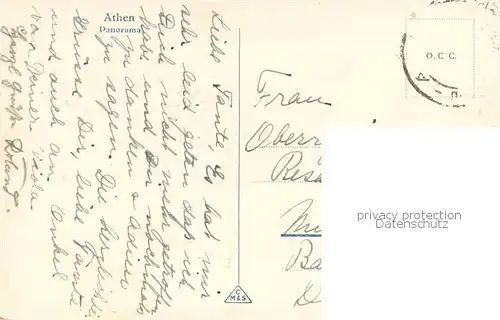 Athen
Panorama
Liebe Tante, Es hat mir
sehr leid getan daß ich
Dich nicht mehr getroffen
habe und Dir nochmals
zu danken & adieu
zu sagen. Die herzlichsten
Grüsse Dir, liebe Tante
und auch an Onkel
von Deiner Viola
Grüße Roland.
O. C. C.
Frau
Oberr
Resi
Mü
Ba
D
C
M&S
privacy protection
Datenschutz